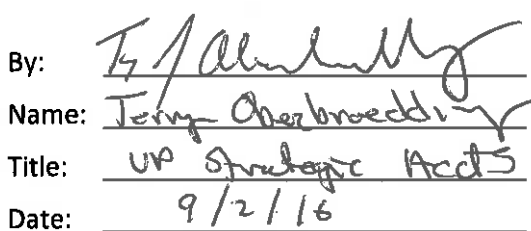 By:
Name: Terry Oberbroeckling
Title: VP Strategic Accts
Date: 9/2/16